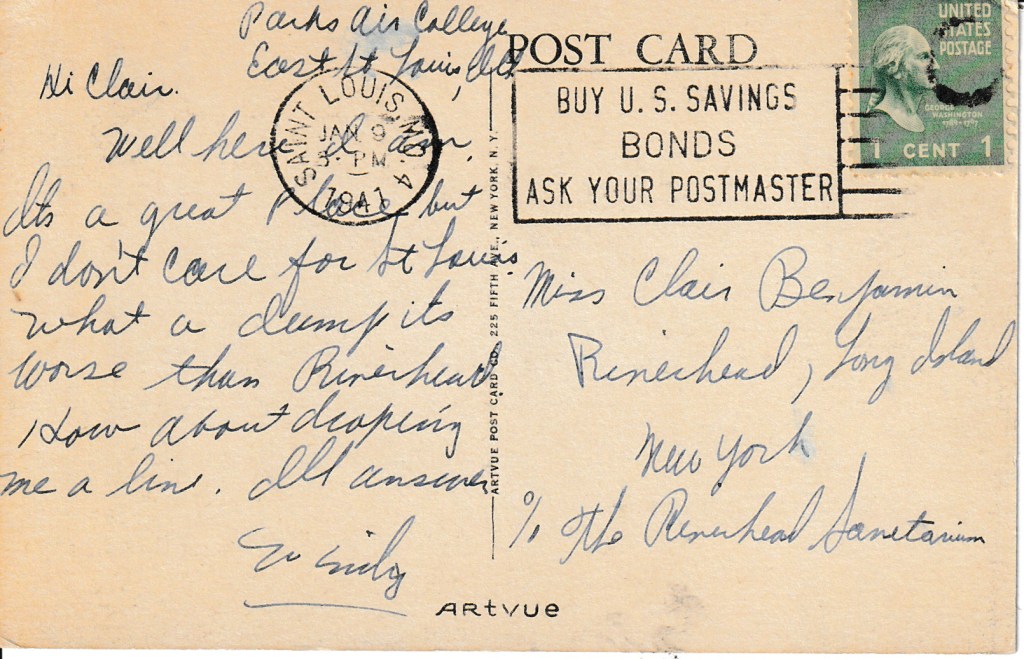 Parks Air College
East St Louis, Ill
Hi Clair.
Well here I am.
Its a great place but
I don't care for St Louis
what a dump its
worse than Riverhead
How about droping
me a line. Ill answer
SAINT LOUIS, MO. 4
JAN 9
PM
1941
POST CARD
BUY U.S. SAVINGS
BONDS
ASK YOUR POSTMASTER
UNITED
STATES
POSTAGE
GEORGE
WASHINGTON
1789-1797
1 CENT 1
Miss Clair Benjamin
Riverhead, Long Island
New York
c/o The Riverhead Sanetarium
ARTVUE POST CARD CO., 225 FIFTH AVE., NEW YORK, N. Y.
ARTVUE